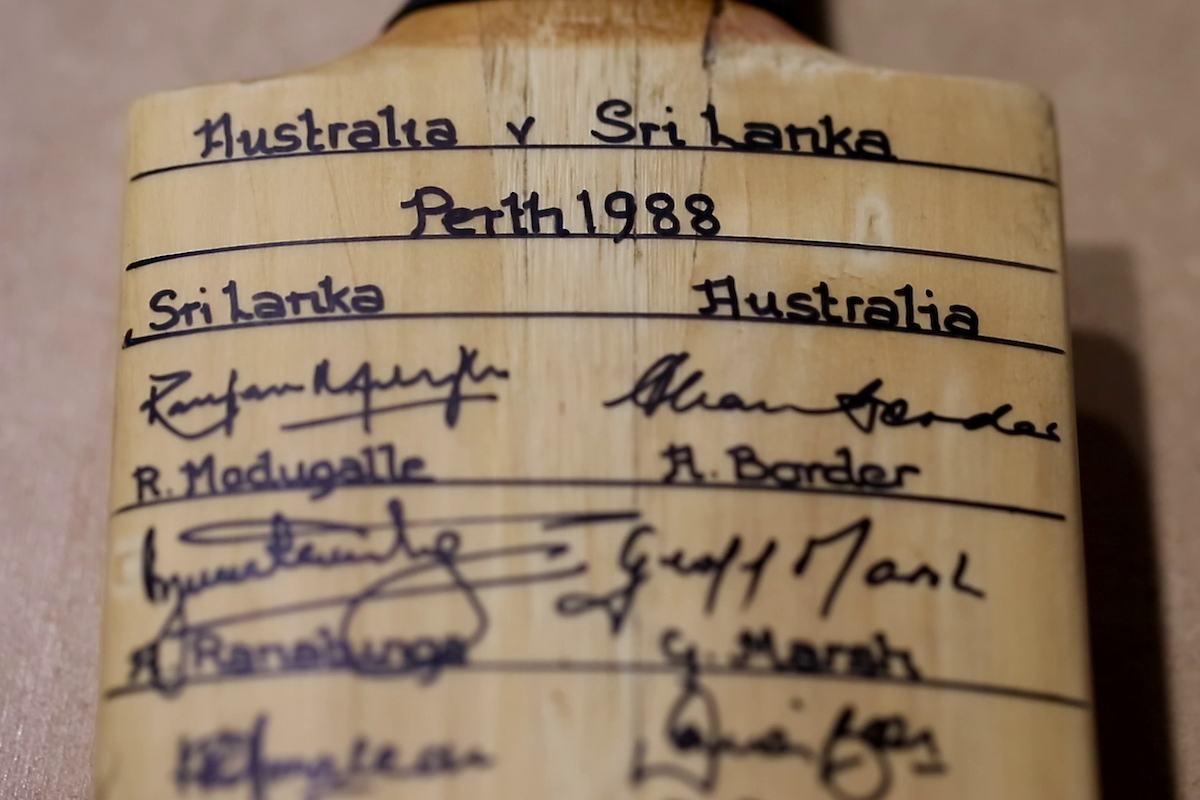 Australia v Sri Lanka
Perth 1988
Sri Lanka Australia
Allan Border
R. Madugalle A. Border
Geoff Marsh
A. Ranatunga G. Marsh